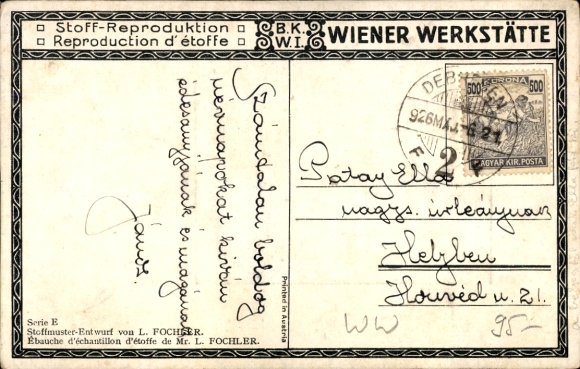 Stoff-Reproduktion
Reproduction d'étoffe
B.K.
W.I.
WIENER WERKSTÄTTE
DEBRECEN
926 MÁJ. 21
2
500 KORONA 500
MAGYAR KIR. POSTA
boldog
névnapokat kíván
édesanyjának és magának
János.
Patay Ella
nagys. úrleánynak
Helyben
Honvéd u. 21.
Printed in Austria
Serie E
Stoffmuster-Entwurf von L. FOCHLER.
Ébauche d'échantillon d'étoffe de Mr. L. FOCHLER.
WW
95-